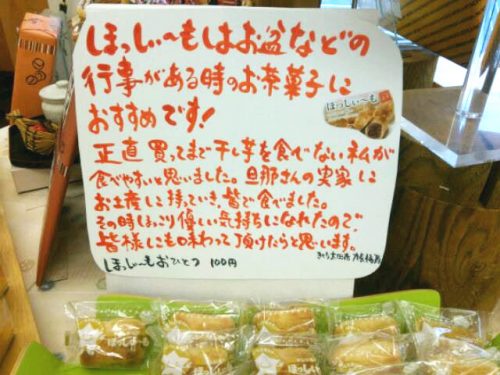 ほっしぃ～もはお盆などの
行事がある時のお茶菓子に
おすすめです!
ほっしぃ～も
正直買ってまで干し芋を食べない私が
食べやすいと思いました。旦那さんの実家に
お土産に持っていき、皆で食べました。
その時ほっこり優しい気持ちになれたので、
皆様にも味わって頂けたらと思います。
ほっしぃ～もおひとつ 100円
ほっしぃ～も